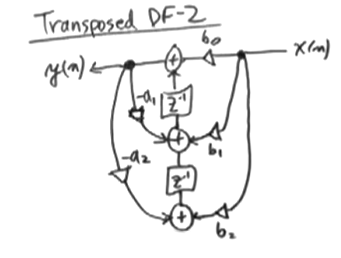 Transposed DF-2
b₀
y(n) x(n)
-a₁ z⁻¹
b₁
-a₂ z⁻¹
b₂